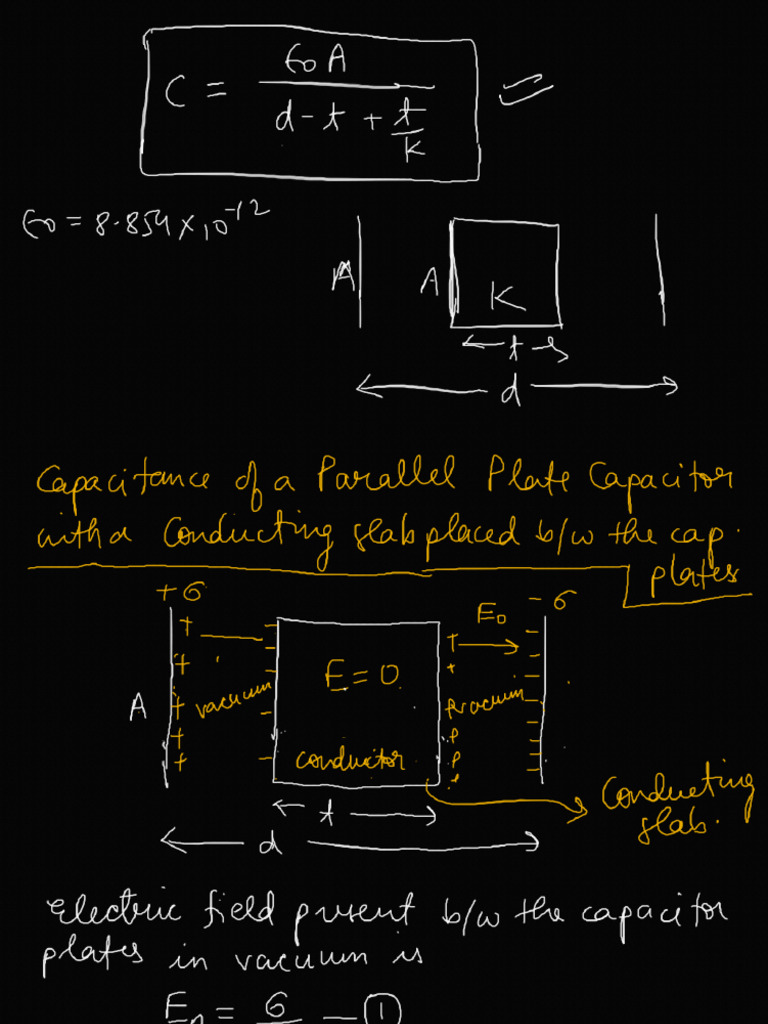 C = ϵ₀A / (d - t + t/K)
ϵ₀ = 8.854 × 10⁻¹²
A A K
t
d
Capacitance of a Parallel Plate Capacitor
with a Conducting slab placed b/w the cap.
plates
+σ -σ
E₀
E = 0
A vacuum vacuum
conductor
Conducting
slab.
t
d
Electric field present b/w the capacitor
plates in vacuum is
E₀ = σ — ①